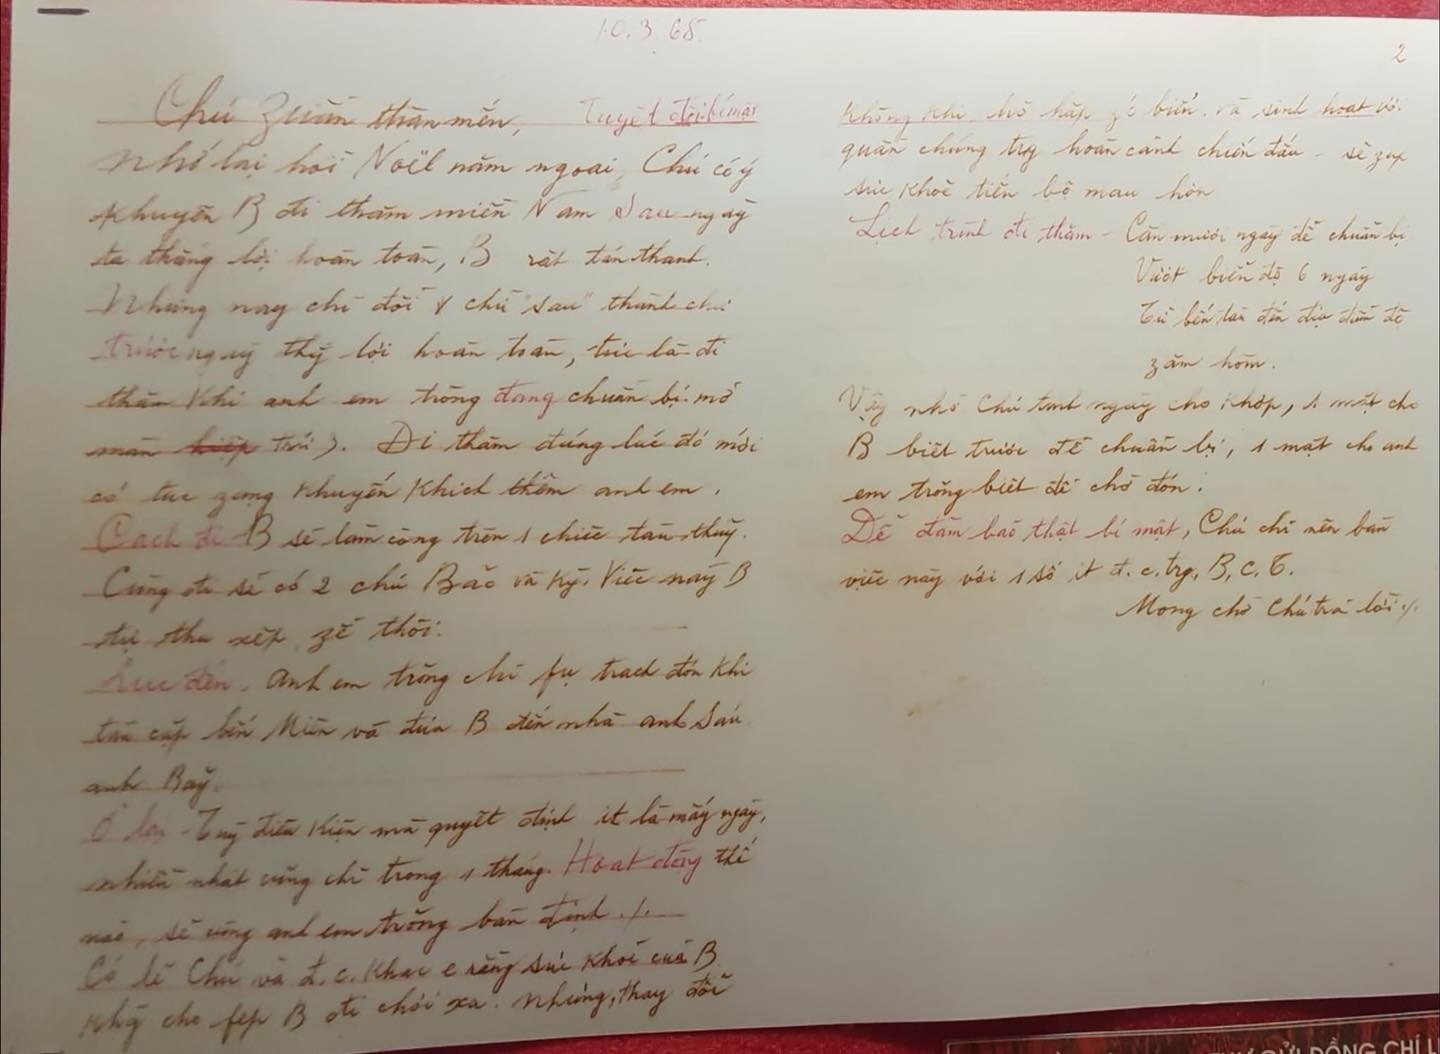 10.3.68.
2
Chú Zuẩn thân mến, Tuyệt đối bí mật
Nhớ lại hồi Noël năm ngoái, Chú có ý
khuyên B đi thăm miền Nam sau ngày
ta thắng lợi hoàn toàn, B rất tán thành.
Nhưng nay chỉ đổi chữ "sau" thành chữ
trước ngày thắng lợi hoàn toàn, tức là đi
thăm khi anh em trỏng đang chuẩn bị mở
màn hiệp thứ 3. Đi thăm đúng lúc đó mới
có tác zụng khuyến khích thêm anh em.
Cách đi B sẽ làm công trên 1 chiếc tàu thuỷ.
Cùng đi sẽ có 2 chú Bảo và Kỳ. Việc này B
tự thu xếp, zễ thôi.
Lúc đến. Anh em trỏng chỉ fụ trách đón khi
tàu cặp bến Miên và đưa B đến nhà anh Sáu
anh Bảy.
Ở lại - Tuỳ điều kiện mà quyết định ít là mấy ngày,
nhiều nhất cũng chỉ trong 1 tháng. Hoạt động thế
nào, sẽ cùng anh em trỏng bàn định ./.
Có lẽ Chú và đ.c. khác e rằng sức khoẻ của B
khg cho fép B đi chơi xa. Nhưng, thay đổi
không khí, hô hấp zó biển, và sinh hoạt với
quần chúng trg hoàn cảnh chiến đấu - sẽ zúp
sức khoẻ tiến bộ mau hơn
Lịch trình đi thăm - Cần mươi ngày để chuẩn bị
Vượt biển độ 6 ngày
Từ bến tàu đến địa điểm độ
zăm hôm.
Vậy nhờ Chú tính ngày cho khớp, 1 mặt cho
B biết trước để chuẩn bị, 1 mặt cho anh
em trỏng biết để chờ đón.
Để đảm bảo thật bí mật, Chú chỉ nên bàn
việc này với 1 số ít đ.c. trg, B, C, T.
Mong chờ Chú trả lời ./.
GỬI ĐỒNG CHÍ